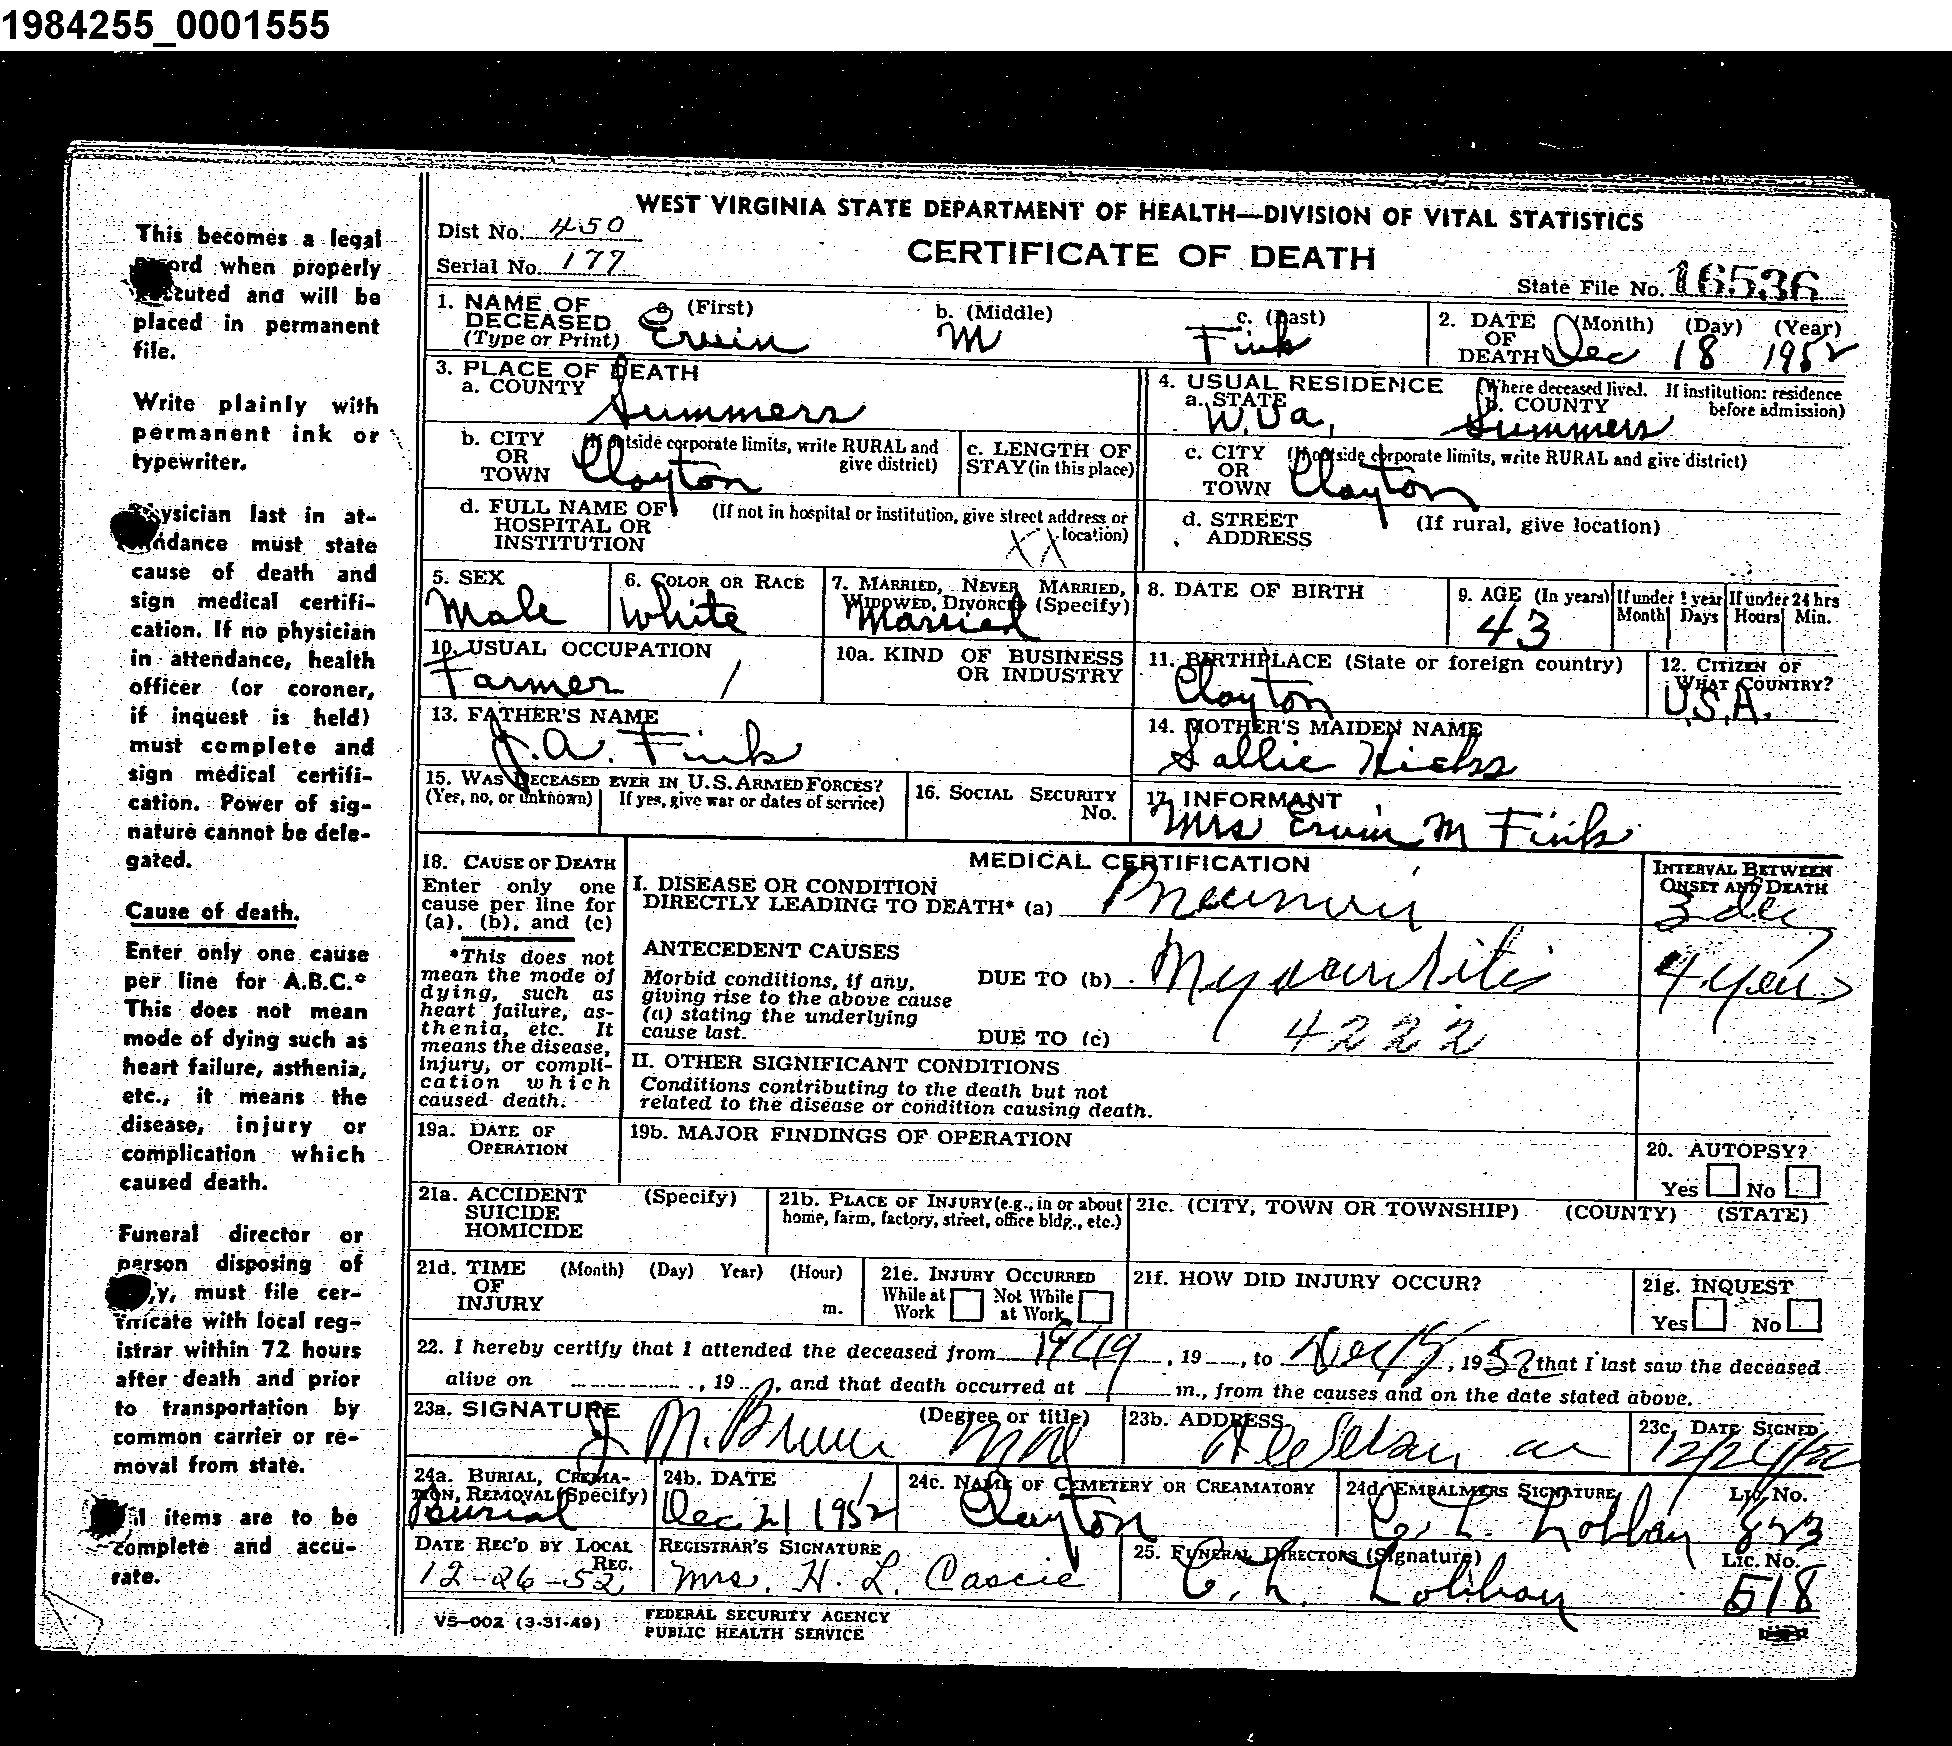 1984255_0001555
WEST VIRGINIA STATE DEPARTMENT OF HEALTH—DIVISION OF VITAL STATISTICS
Dist No. 450
CERTIFICATE OF DEATH
Serial No. 177
State File No. 16536
This becomes a legal
record when properly
executed and will be
placed in permanent
file.
Write plainly with
permanent ink or
typewriter.
Physician last in at-
tendance must state
cause of death and
sign medical certifi-
cation. If no physician
in attendance, health
officer (or coroner,
if inquest is held)
must complete and
sign medical certifi-
cation. Power of sig-
nature cannot be dele-
gated.
Cause of death.
Enter only one cause
per line for A.B.C.*
This does not mean
mode of dying such as
heart failure, asthenia,
etc., it means the
disease, injury or
complication which
caused death.
Funeral director or
person disposing of
must file cer-
tificate with local reg-
istrar within 72 hours
after death and prior
to transportation by
common carrier or re-
moval from state.
All items are to be
complete and accu-
rate.
1. NAME OF DECEASED (Type or Print) a. (First) Ervin b. (Middle) M c. (Last) Fink
2. DATE OF DEATH (Month) (Day) (Year) Dec 18 1952
3. PLACE OF DEATH
a. COUNTY Summers
4. USUAL RESIDENCE (Where deceased lived. If institution: residence before admission)
a. STATE W. Va. b. COUNTY Summers
b. CITY OR TOWN (If outside corporate limits, write RURAL and give district) Clayton
c. LENGTH OF STAY (in this place)
c. CITY OR TOWN (If outside corporate limits, write RURAL and give district) Clayton
d. FULL NAME OF HOSPITAL OR INSTITUTION (If not in hospital or institution, give street address or location) XX
d. STREET ADDRESS (If rural, give location)
5. SEX Male
6. COLOR OR RACE White
7. MARRIED, NEVER MARRIED, WIDOWED, DIVORCED (Specify) Married
8. DATE OF BIRTH
9. AGE (In years) 43 If under 1 year Month Days If under 24 hrs Hours Min.
10. USUAL OCCUPATION Farmer /
10a. KIND OF BUSINESS OR INDUSTRY
11. BIRTHPLACE (State or foreign country) Clayton
12. CITIZEN OF WHAT COUNTRY? U.S.A.
13. FATHER'S NAME J. A. Fink
14. MOTHER'S MAIDEN NAME Sallie Hicks
15. WAS DECEASED EVER IN U.S. ARMED FORCES? (Yes, no, or unknown) If yes, give war or dates of service)
16. SOCIAL SECURITY No.
17. INFORMANT Mrs Ervin M Fink
18. CAUSE OF DEATH
Enter only one
cause per line for
(a), (b), and (c)
*This does not
mean the mode of
dying, such as
heart failure, as-
thenia, etc. It
means the disease,
injury, or compli-
cation which
caused death.
MEDICAL CERTIFICATION
INTERVAL BETWEEN ONSET AND DEATH
I. DISEASE OR CONDITION
DIRECTLY LEADING TO DEATH* (a) 3
ANTECEDENT CAUSES
Morbid conditions, if any,
giving rise to the above cause
(a) stating the underlying
cause last.
DUE TO (b) Myocarditis 4 years
DUE TO (c) 4222
II. OTHER SIGNIFICANT CONDITIONS
Conditions contributing to the death but not
related to the disease or condition causing death.
19a. DATE OF OPERATION
19b. MAJOR FINDINGS OF OPERATION
20. AUTOPSY?
Yes No
21a. ACCIDENT SUICIDE HOMICIDE (Specify)
21b. PLACE OF INJURY (e.g., in or about home, farm, factory, street, office bldg., etc.)
21c. (CITY, TOWN OR TOWNSHIP) (COUNTY) (STATE)
21d. TIME OF INJURY (Month) (Day) Year) (Hour) m.
21e. INJURY OCCURRED
While at Work Not While at Work
21f. HOW DID INJURY OCCUR?
21g. INQUEST
Yes No
22. I hereby certify that I attended the deceased from 1949, 19 , to Dec 15, 1952 that I last saw the deceased
alive on , 19 , and that death occurred at m., from the causes and on the date stated above.
23a. SIGNATURE (Degree or title) J M. MD
23b. ADDRESS
23c. DATE SIGNED
24a. BURIAL, CREMATION, REMOVAL (Specify) Burial
24b. DATE Dec 21 1952
24c. NAME OF CEMETERY OR CREAMATORY Clayton
24d. EMBALMERS SIGNATURE Lic. No. C. L. Lobban 323
DATE REC'D BY LOCAL REG. 12-26-52
REGISTRAR'S SIGNATURE Mrs. H. L. Cascie
25. FUNERAL DIRECTORS (Signature) C. L. Lobban Lic. No. 518
VS-002 (3-31-49)
FEDERAL SECURITY AGENCY
PUBLIC HEALTH SERVICE